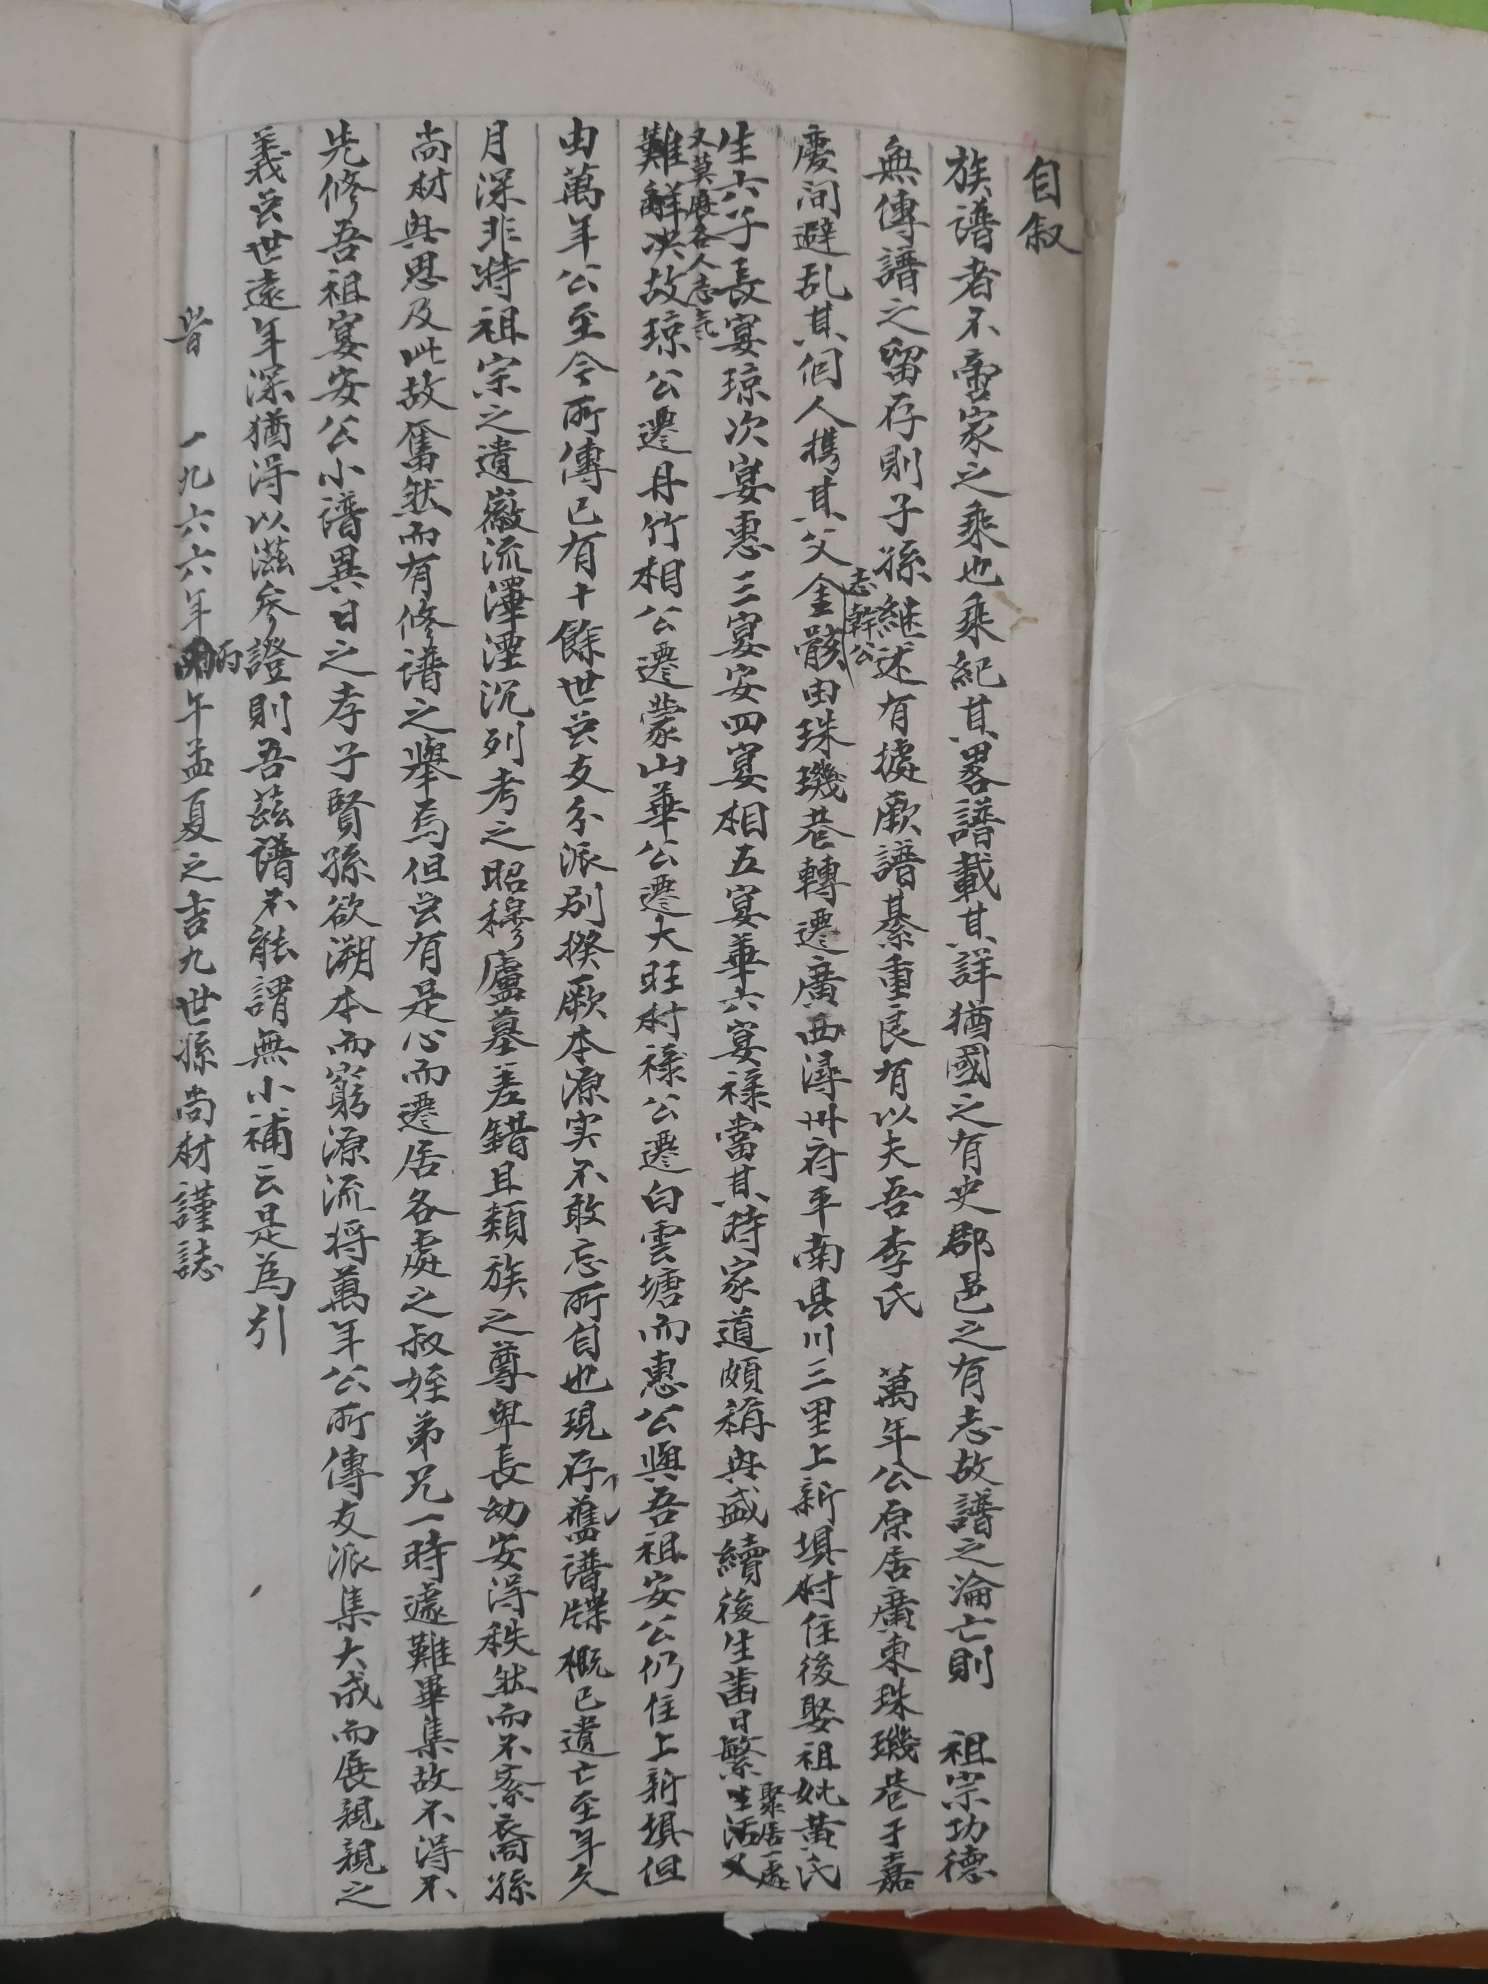 自叙
族譜者不啻家之乘也乘紀其畧譜載其詳猶國之有史郡邑之有志故譜之淪亡則 祖宗功德
無傳譜之留存則子孫継述有據厥譜綦重良有以夫吾李氏 萬年公原居廣東珠璣巷于嘉
志幹公
慶间避乱其個人携其父金骸由珠璣巷轉遷廣西潯州府平南县川三里上新塤村住後娶祖妣黄氏
聚居一處
生六子長宴琼次宴惠三宴安四宴相五宴華六宴禄當其時家道頗稱興盛續後生齒日繁生活又
又莫展各人志气
難鮮决故琼公遷丹竹相公遷蒙山華公遷大旺村禄公遷白雲塘而惠公與吾祖安公仍住上新塤但
由萬年公至今所傳已有十餘世兰支分派别揆厥本源实不敢忘所自也現存舊譜牒概已遺亡至年久
月深非特祖宗之遺徽流澤湮沉列考之昭穆廬墓差錯且類族之尊卑長幼安得秩然而不紊裔孫
尚材興思及此故奮然而有修譜之舉焉但兰有是心而遷居各處之叔姪弟兄一時遽難畢集故不得不
先修吾祖宴安公小譜異日之孝子賢孫欲溯本而窮源流将萬年公所傳支派集大成而展親親之
義兰世遠年深猶得以滋参證則吾兹譜不能謂無小補云是為引
旹 一九六六年丙午孟夏之吉九世孫尚材謹誌